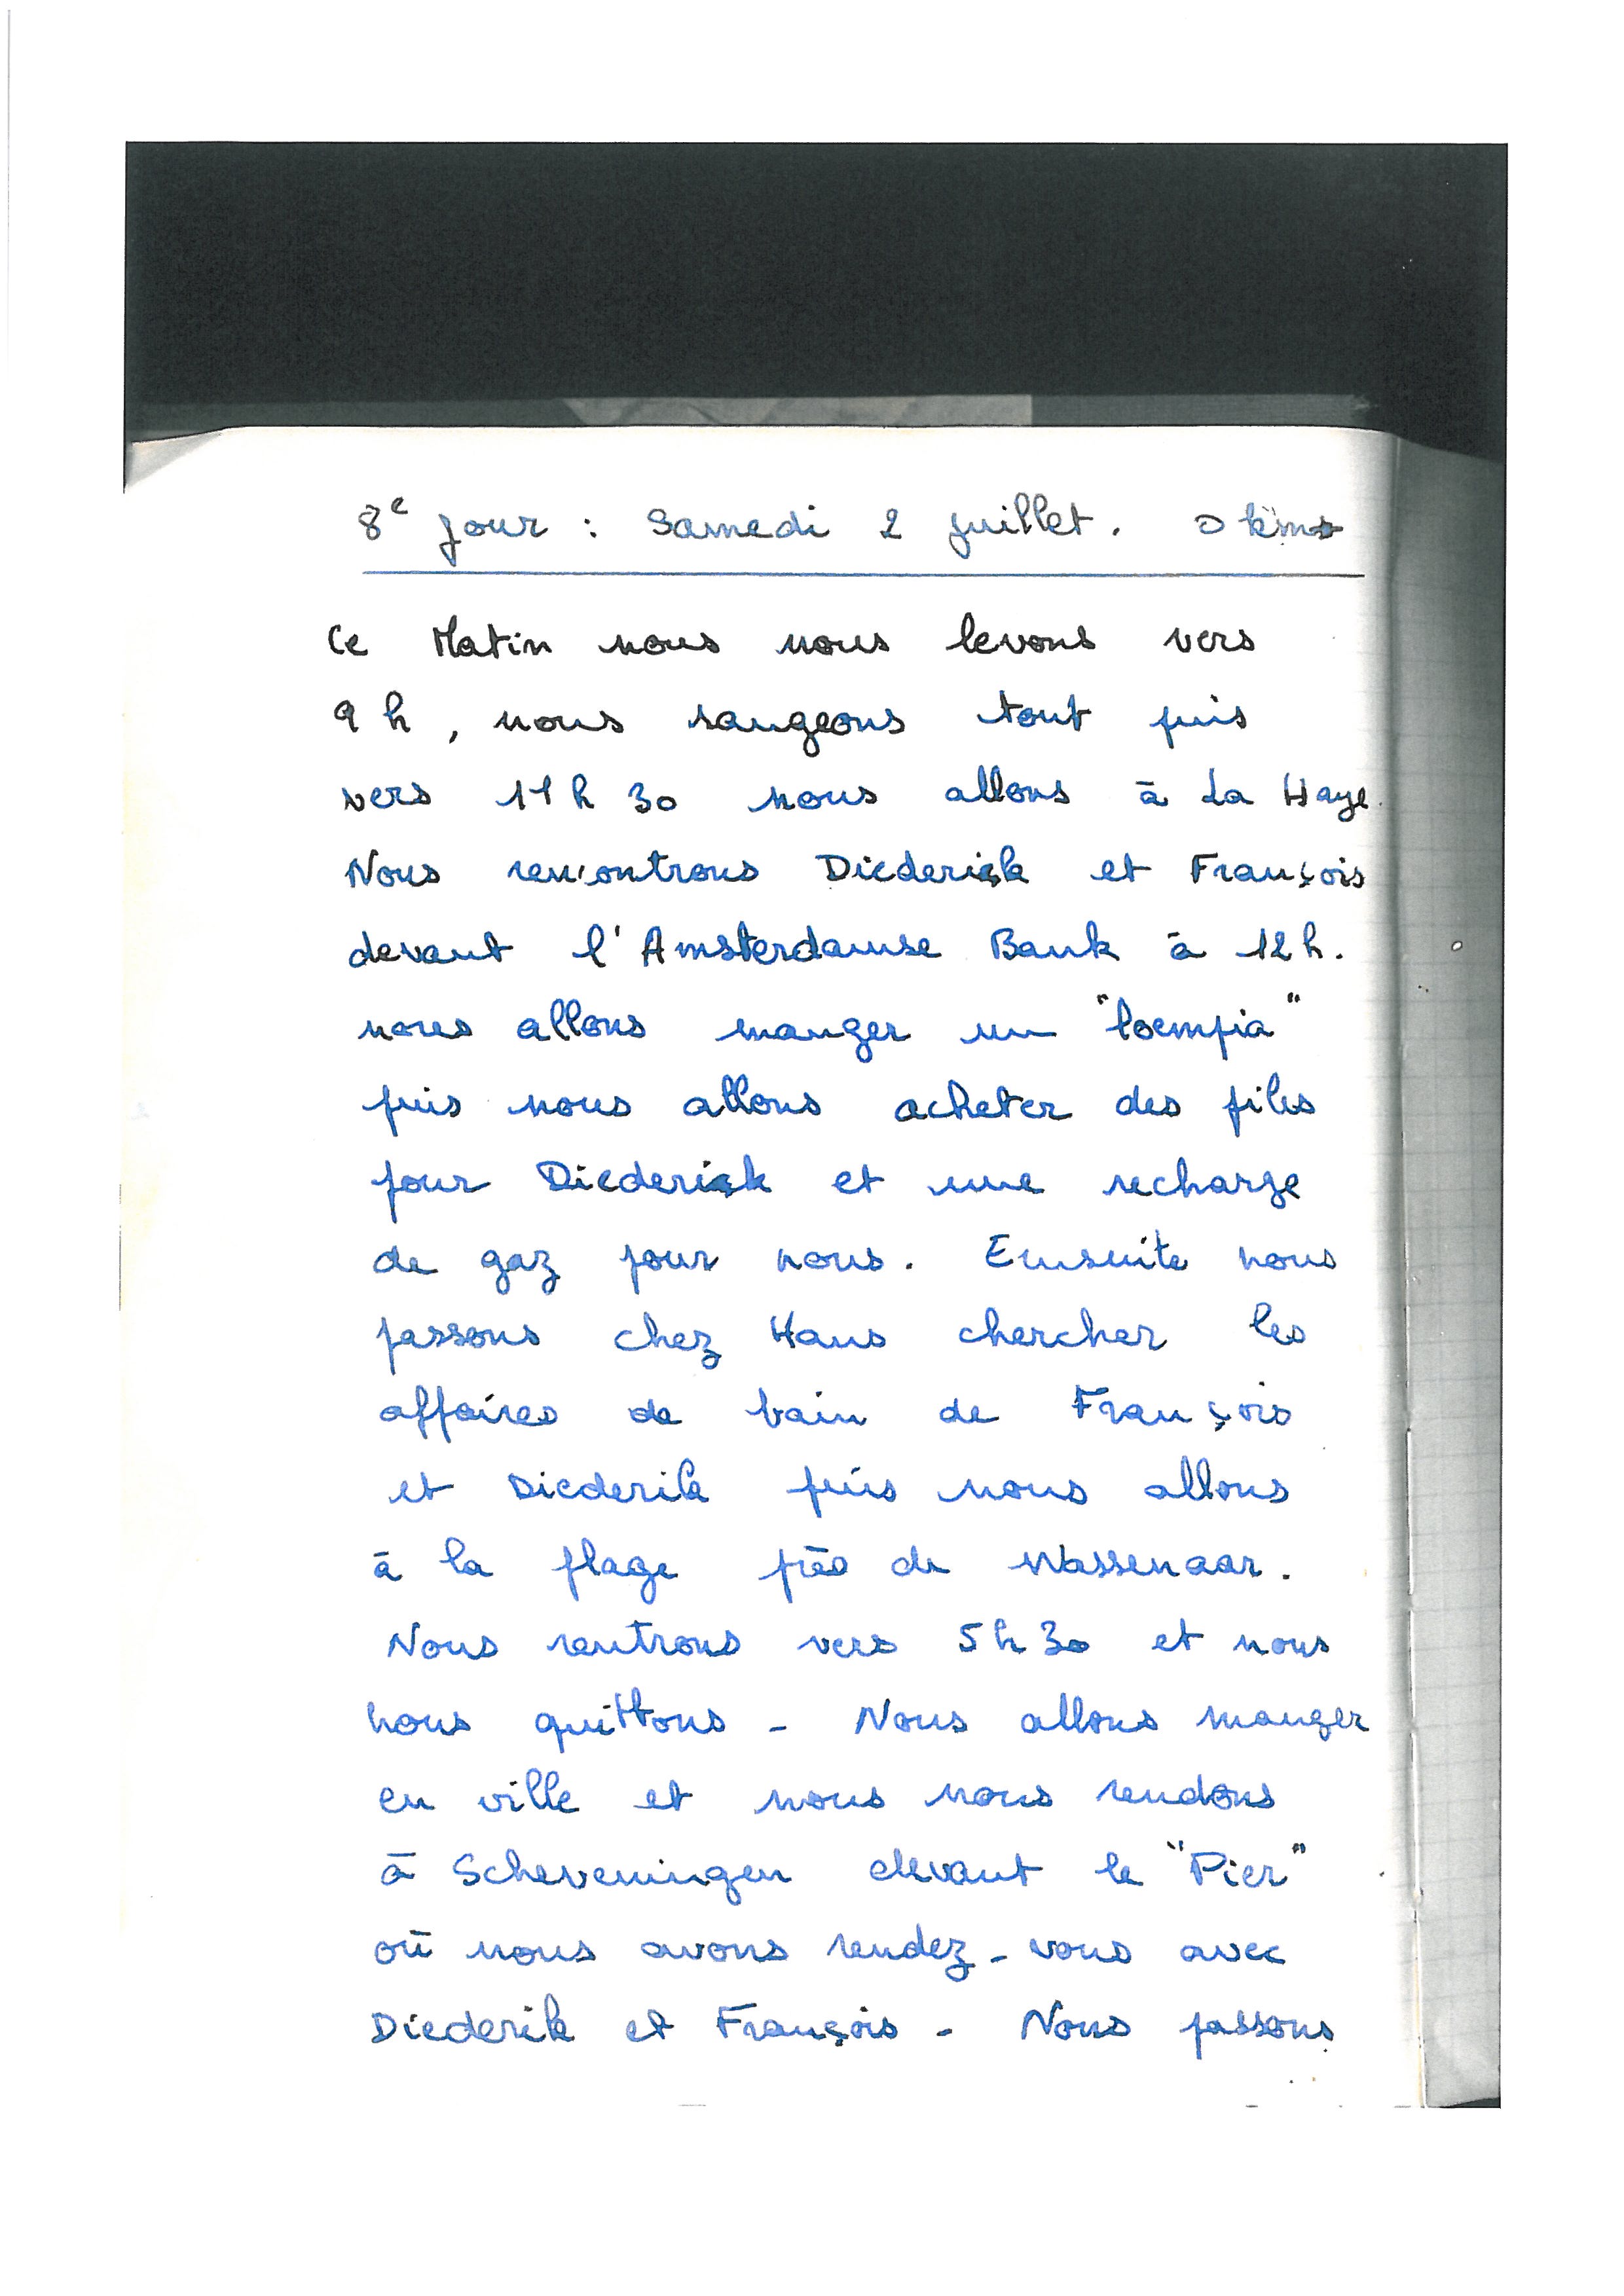 8e jour : Samedi 2 juillet. 0 kms
Ce Matin nous nous levons vers
9 h, nous rangeons tout puis
vers 11 h 30 nous allons à La Haye.
Nous rencontrons Diederik et François
devant l'Amsterdamse Bank à 12 h.
nous allons manger un "loempia"
puis nous allons acheter des piles
pour Diederik et une recharge
de gaz pour nous. Ensuite nous
passons chez Hans chercher les
affaires de bain de François
et Diederik puis nous allons
à la plage près de Wassenaar.
Nous rentrons vers 5 h 30 et nous
nous quittons - Nous allons manger
en ville et nous nous rendons
à Scheveningen devant le "Pier"
où nous avons rendez-vous avec
Diederik et François - Nous passons